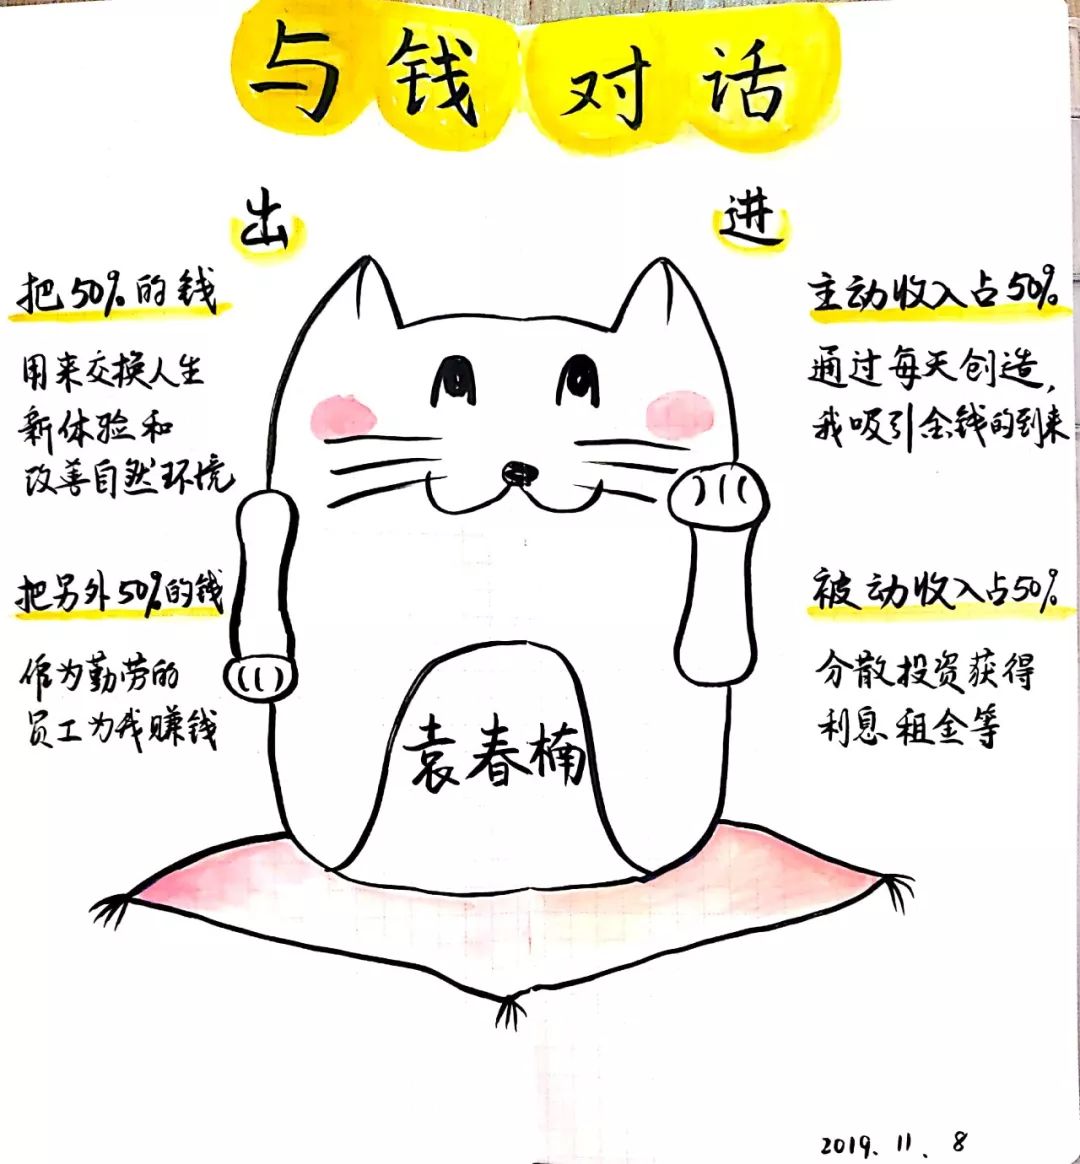 与钱对话
出
把50%的钱
用来交换人生
新体验和
改善自然环境
把另外50%的钱
作为勤劳的
员工为我赚钱
进
主动收入占50%
通过每天创造，
我吸引金钱的到来
被动收入占50%
分散投资获得
利息租金等
袁春楠
2019.11.8